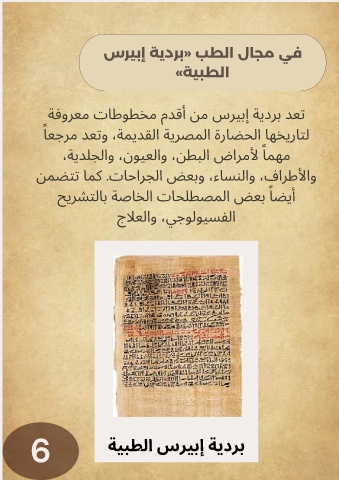 في مجال الطب «بردية إبيرس
الطبية»
تعد بردية إبيرس من أقدم مخطوطات معروفة
لتاريخها الحضارة المصرية القديمة، وتعد مرجعاً
مهماً لأمراض البطن، والعيون، والجلدية،
والأطراف، والنساء، وبعض الجراحات. كما تتضمن
أيضاً بعض المصطلحات الخاصة بالتشريح
الفسيولوجي، والعلاج
بردية إبيرس الطبية
6